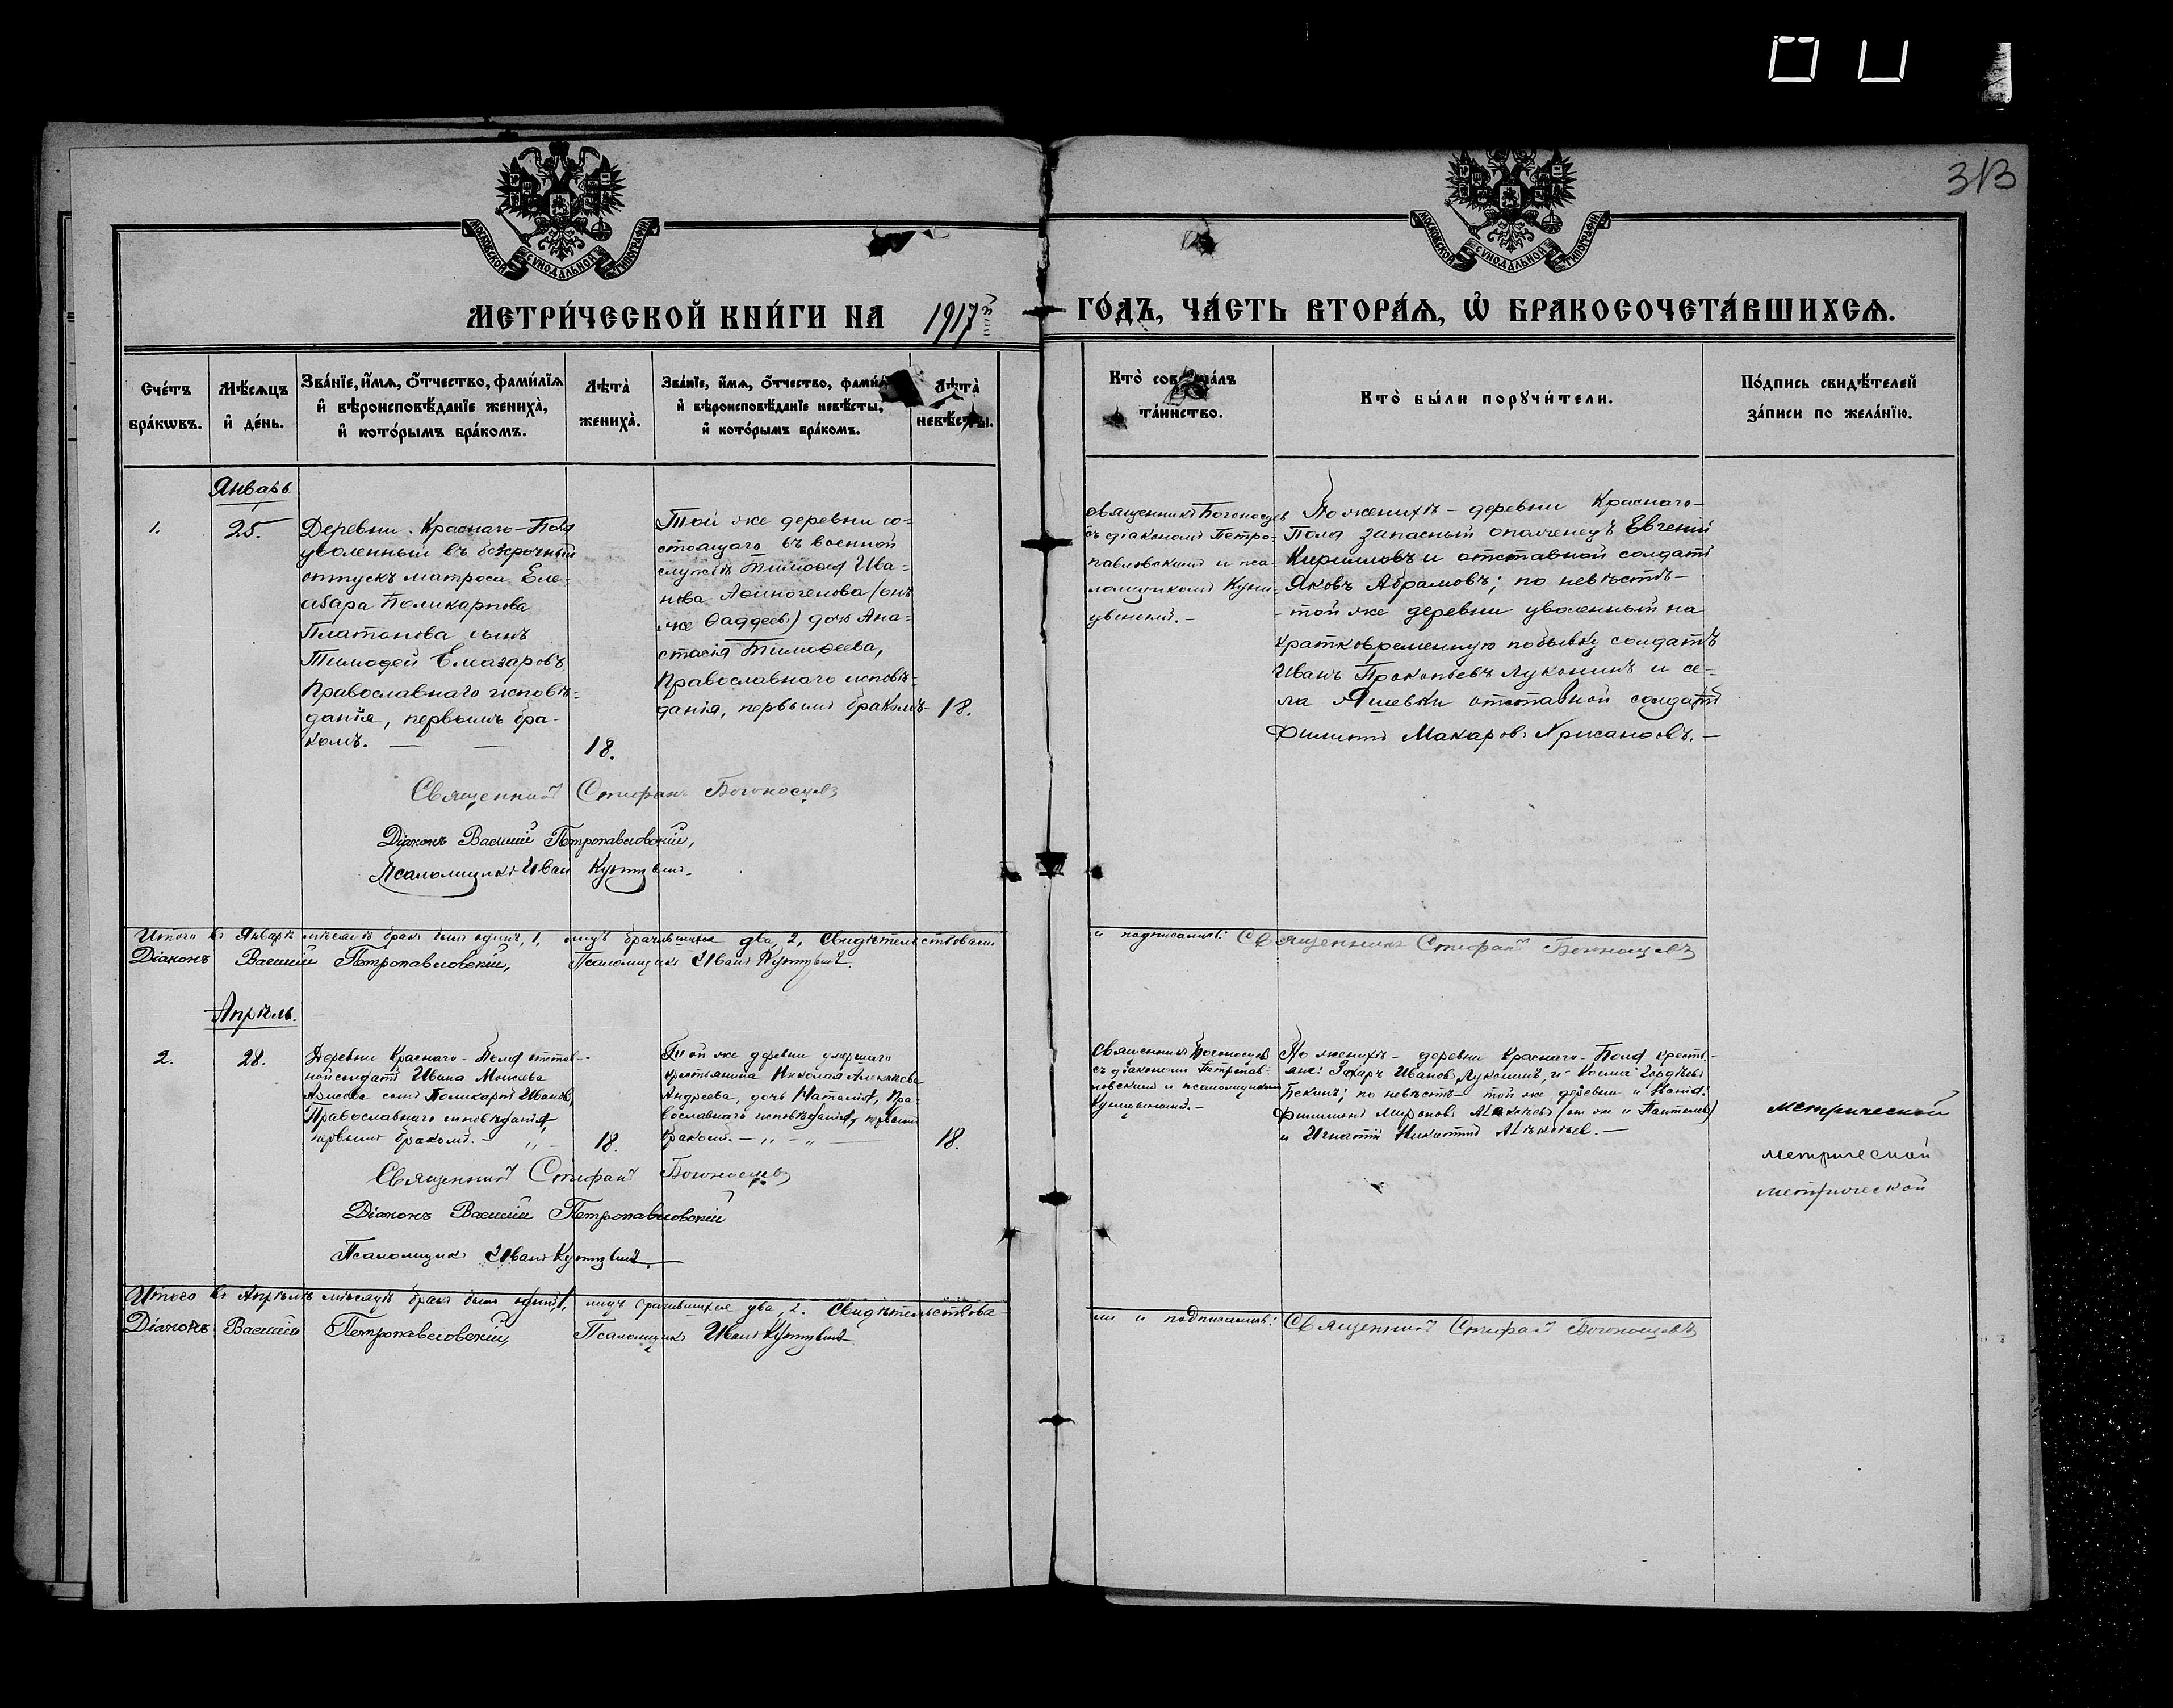 313
МОСКОВСКОЙ СѴНОДАЛЬНОЙ ТИПОГРАФІИ
МОСКОВСКОЙ СѴНОДАЛЬНОЙ ТИПОГРАФІИ
МЕТРИ́ЧЕСКОЙ КНИ́ГИ НА 1917й ГО́ДЪ, ЧА́СТЬ ВТОРА́Ѧ, Ѡ҆ БРАКОСОЧЕТА́ВШИХСѦ.
Сче́тъ бра́кѡвъ.
Мѣ́сѧцъ и҆ де́нь.
Зва́нїе, и҆́мѧ, ѻ҆́тчество, фами́лїѧ
и҆ вѣроисповѣ́данїе жениха̀,
и҆ кото́рымъ бра́комъ.
Лѣта̀ жениха̀.
Зва́нїе, и҆́мѧ, ѻ҆́тчество,
и҆ вѣроисповѣ́данїе невѣ́сты,
и҆ кото́рымъ бра́комъ.
Лѣта̀ невѣ́сты.
Кто̀
та́инство.
Кто̀ бы́ли порꙋчи́тели.
По́дпись свидѣ́телей
за́писи по жела́нїю.
Январь
1.
25.
Деревни Краснаго-Поля
уволенный въ безсрочный
отпускъ матроса Еле-
азара Поликарпова
Платонова сынъ
Тимофей Елеазаровъ
Православнаго исповѣ-
данія, первымъ бра-
комъ.
18.
Той же деревни со-
стоящаго въ военной
службѣ Тимофея Ива-
нова Афиногенова (онъ
же Фаддеев) дочь Ана-
стасія Тимофеева,
Православнаго исповѣ-
данія, первымъ бракомъ
18.
Священникъ Богоносцев
съ діакономъ Петро-
павловскимъ и пса-
ломщикомъ
По женихѣ - деревни Краснаго-
Поля запасный ополченецъ Евгений
Кирилловъ и отставной солдатъ
Яковъ Абрамовъ; по невѣстѣ -
- той же деревни уволенный на
кратковременную побывку солдатъ
Иванъ Прокопьевъ Луконинъ и се-
ла Яшевки отставной солдатъ
Филиппъ Макаровъ Хрисанфовъ. -
Священникъ Стефанъ Богоносцевъ
Діаконъ Василій Петропавловскій,
Псаломщикъ Иван
Итого въ Январѣ мѣсяцѣ бракъ былъ одинъ, 1, лицъ брачившихся два, 2, Свидѣтельствовали
и подписались: Священникъ Стефанъ Богоносцевъ
Діаконъ Василій Петропавловскій, Псаломщикъ Иванъ
Апрѣль.
2.
28.
Деревни Краснаго-Поля отстав-
ной солдатъ Ивана Моисеева
сынъ Поликарпъ Ивановъ,
Православнаго исповѣданія,
первымъ бракомъ. -
18.
Той же деревни умершаго
крестьянина Николая
Андреева, дочь Наталія, Пра-
вославнаго исповѣданія, первымъ
бракомъ. - „ - „
18.
Священникъ Богоносцев
съ діакономъ Петропав-
ловскимъ и псаломщикомъ
По женихѣ - деревни Краснаго-Поля кресть-
яне: Захаръ Ивановъ Луконинъ, и Косма Гордѣевъ
по невѣстѣ - той же деревни
Филимонъ Мироновъ
и Игнатій
метрической
метрической
метрической
Священникъ Стефанъ Богоносцевъ
Діаконъ Василій Петропавловскій
Псаломщикъ Иванъ
Итого въ Апрѣлѣ мѣсяцѣ бракъ былъ одинъ 1, лицъ брачившихся два, 2. Свидѣтельствова-
ли и подписались: Священникъ Стефанъ Богоносцевъ
Діаконъ Василій Петропавловскій, Псаломщикъ Иванъ